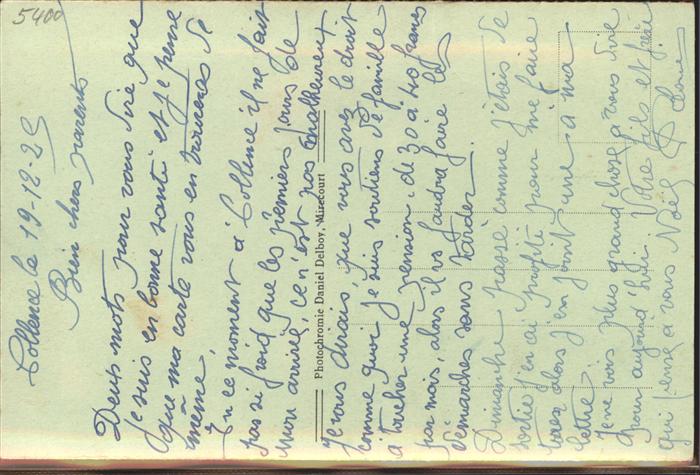 5400
Collence le 19-12-29
Bien chers parents
Deux mots pour vous dire que
je suis en bonne santé et je pense
que ma carte vous en trouveras de
même.
En ce moment à Collence il ne fait
pas si froid que les premiers jours de
mon arrivé, ce n'est pas malheureux
Photochromie Daniel Delboy, Mirecourt
Je vous dirais, que vous avez le droit
comme quoi je suis soutiens de famille
a toucher une pension, de 30 à 40 francs
par mois, alors il vs faudra faire les
démarches sans tarder.
Dimanche passé comme j'étais de
sortie j'en ai profité pour me faire
tirer alors j'en joint une a ma
lettre
Je ne vois plus grand chose a vous dire
pour aujourd'hui. Votre fils et frère
qui pense a vous Noël